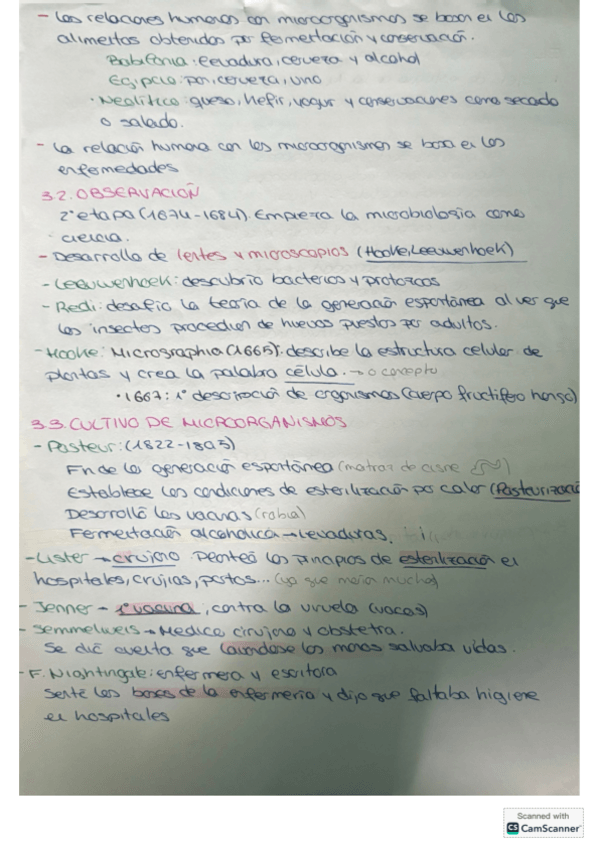 - Las relaciones humanas con microorganismos se basan en los
alimentos obtenidos por fermentación y conservación.
Babilonia: levadura, cerveza y alcohol
Egipcia: pan, cerveza, vino
· Neolítico: queso, kefir, yogur y conservaciones como secado
o salado.
- La relación humana con los microorganismos se basa en las
enfermedades
3.2. OBSERVACIÓN
2ª etapa (1674-1684). Empieza la microbiología como
ciencia.
- Desarrollo de lentes y microscopios (Hooke, Leeuwenhoek)
- Leeuwenhoek: descubrió bacterias y protozoos
- Redi: desafía la teoría de la generación espontánea al ver que
los insectos procedían de huevos puestos por adultos.
- Hooke: Micrographia (1665): describe la estructura celular de
plantas y crea la palabra célula. → o concepto
· 1667: 1ª descripción de organismos (cuerpo fructífero hongo)
3.3. CULTIVO DE MICROORGANISMOS
- Pasteur: (1822-1895)
Fin de la generación espontánea (matraz de cisne)
Establece las condiciones de esterilización por calor (Pasteurizació
Desarrolló las vacunas (rabia)
Fermentación alcohólica → levaduras.
- Lister → cirujano Planteó los principios de esterilización en
hospitales, cirujías, partos... (ya que moría mucho)
- Jenner - 1ª vacuna, contra la viruela (vacas)
- Semmelweis → Médico cirujano y obstetra.
Se dió cuenta que lavándose las manos salvaba vidas.
- F. Nightingale: enfermera y escritora
Sente las bases de la enfermería y dijo que faltaba higiene
en hospitales
Scanned with
CS CamScanner